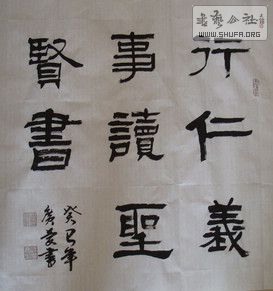 行仁義
事讀聖
賢書
癸巳年
書
書藝公社
WWW.SHUFA.ORG